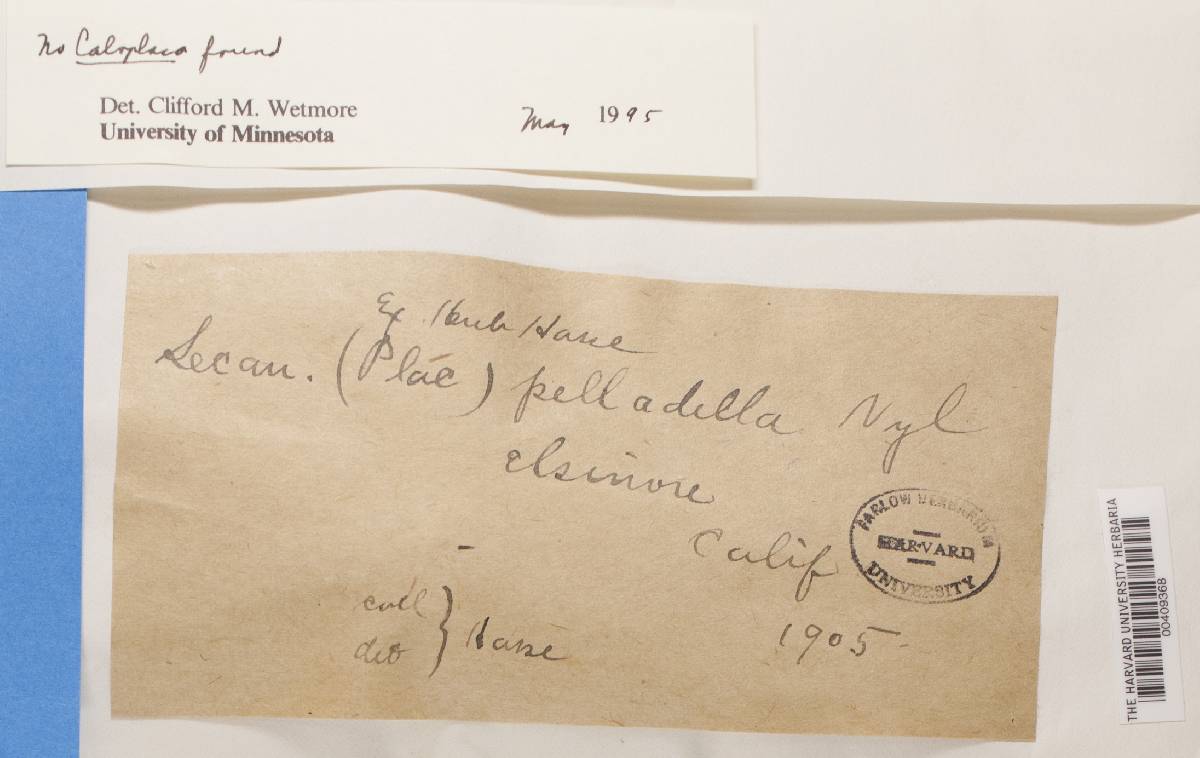 No Caloplaca found
Det. Clifford M. Wetmore
University of Minnesota
May 1995
Ex Herb Hasse
Lecan. (Plac) pelladella Nyl
Elsinore
Calif
1905
coll
det } Hasse
FARLOW HERBARIUM
HARVARD
UNIVERSITY
THE HARVARD UNIVERSITY HERBARIA
00409368